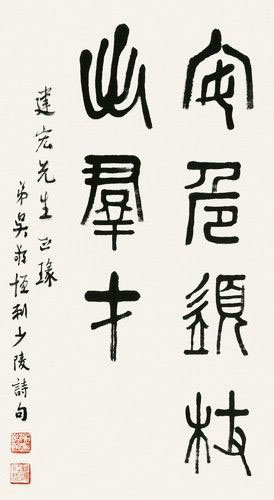 安危須杖
出羣才
建宏先生正瑑
弟吳敬恆利少陵詩句